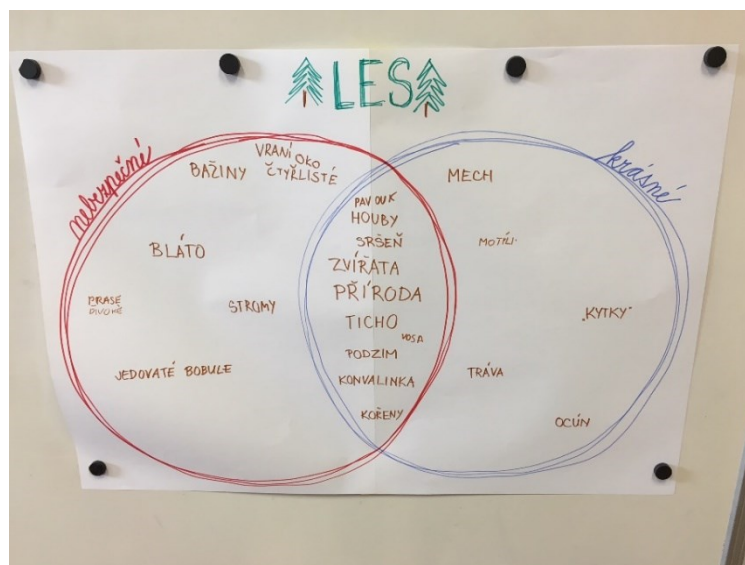 LES
nebezpečné
krásné
BAŽINY
VRANÍ OKO
ČTYŘLISTÉ
BLÁTO
PRASE
DIVOKÉ
STROMY
JEDOVATÉ BOBULE
PAVOUK
HOUBY
SRŠEŇ
ZVÍŘATA
PŘÍRODA
TICHO
VOSA
PODZIM
KONVALINKA
KOŘENY
MECH
MOTÝLI
KYTKY
TRÁVA
OCÚN